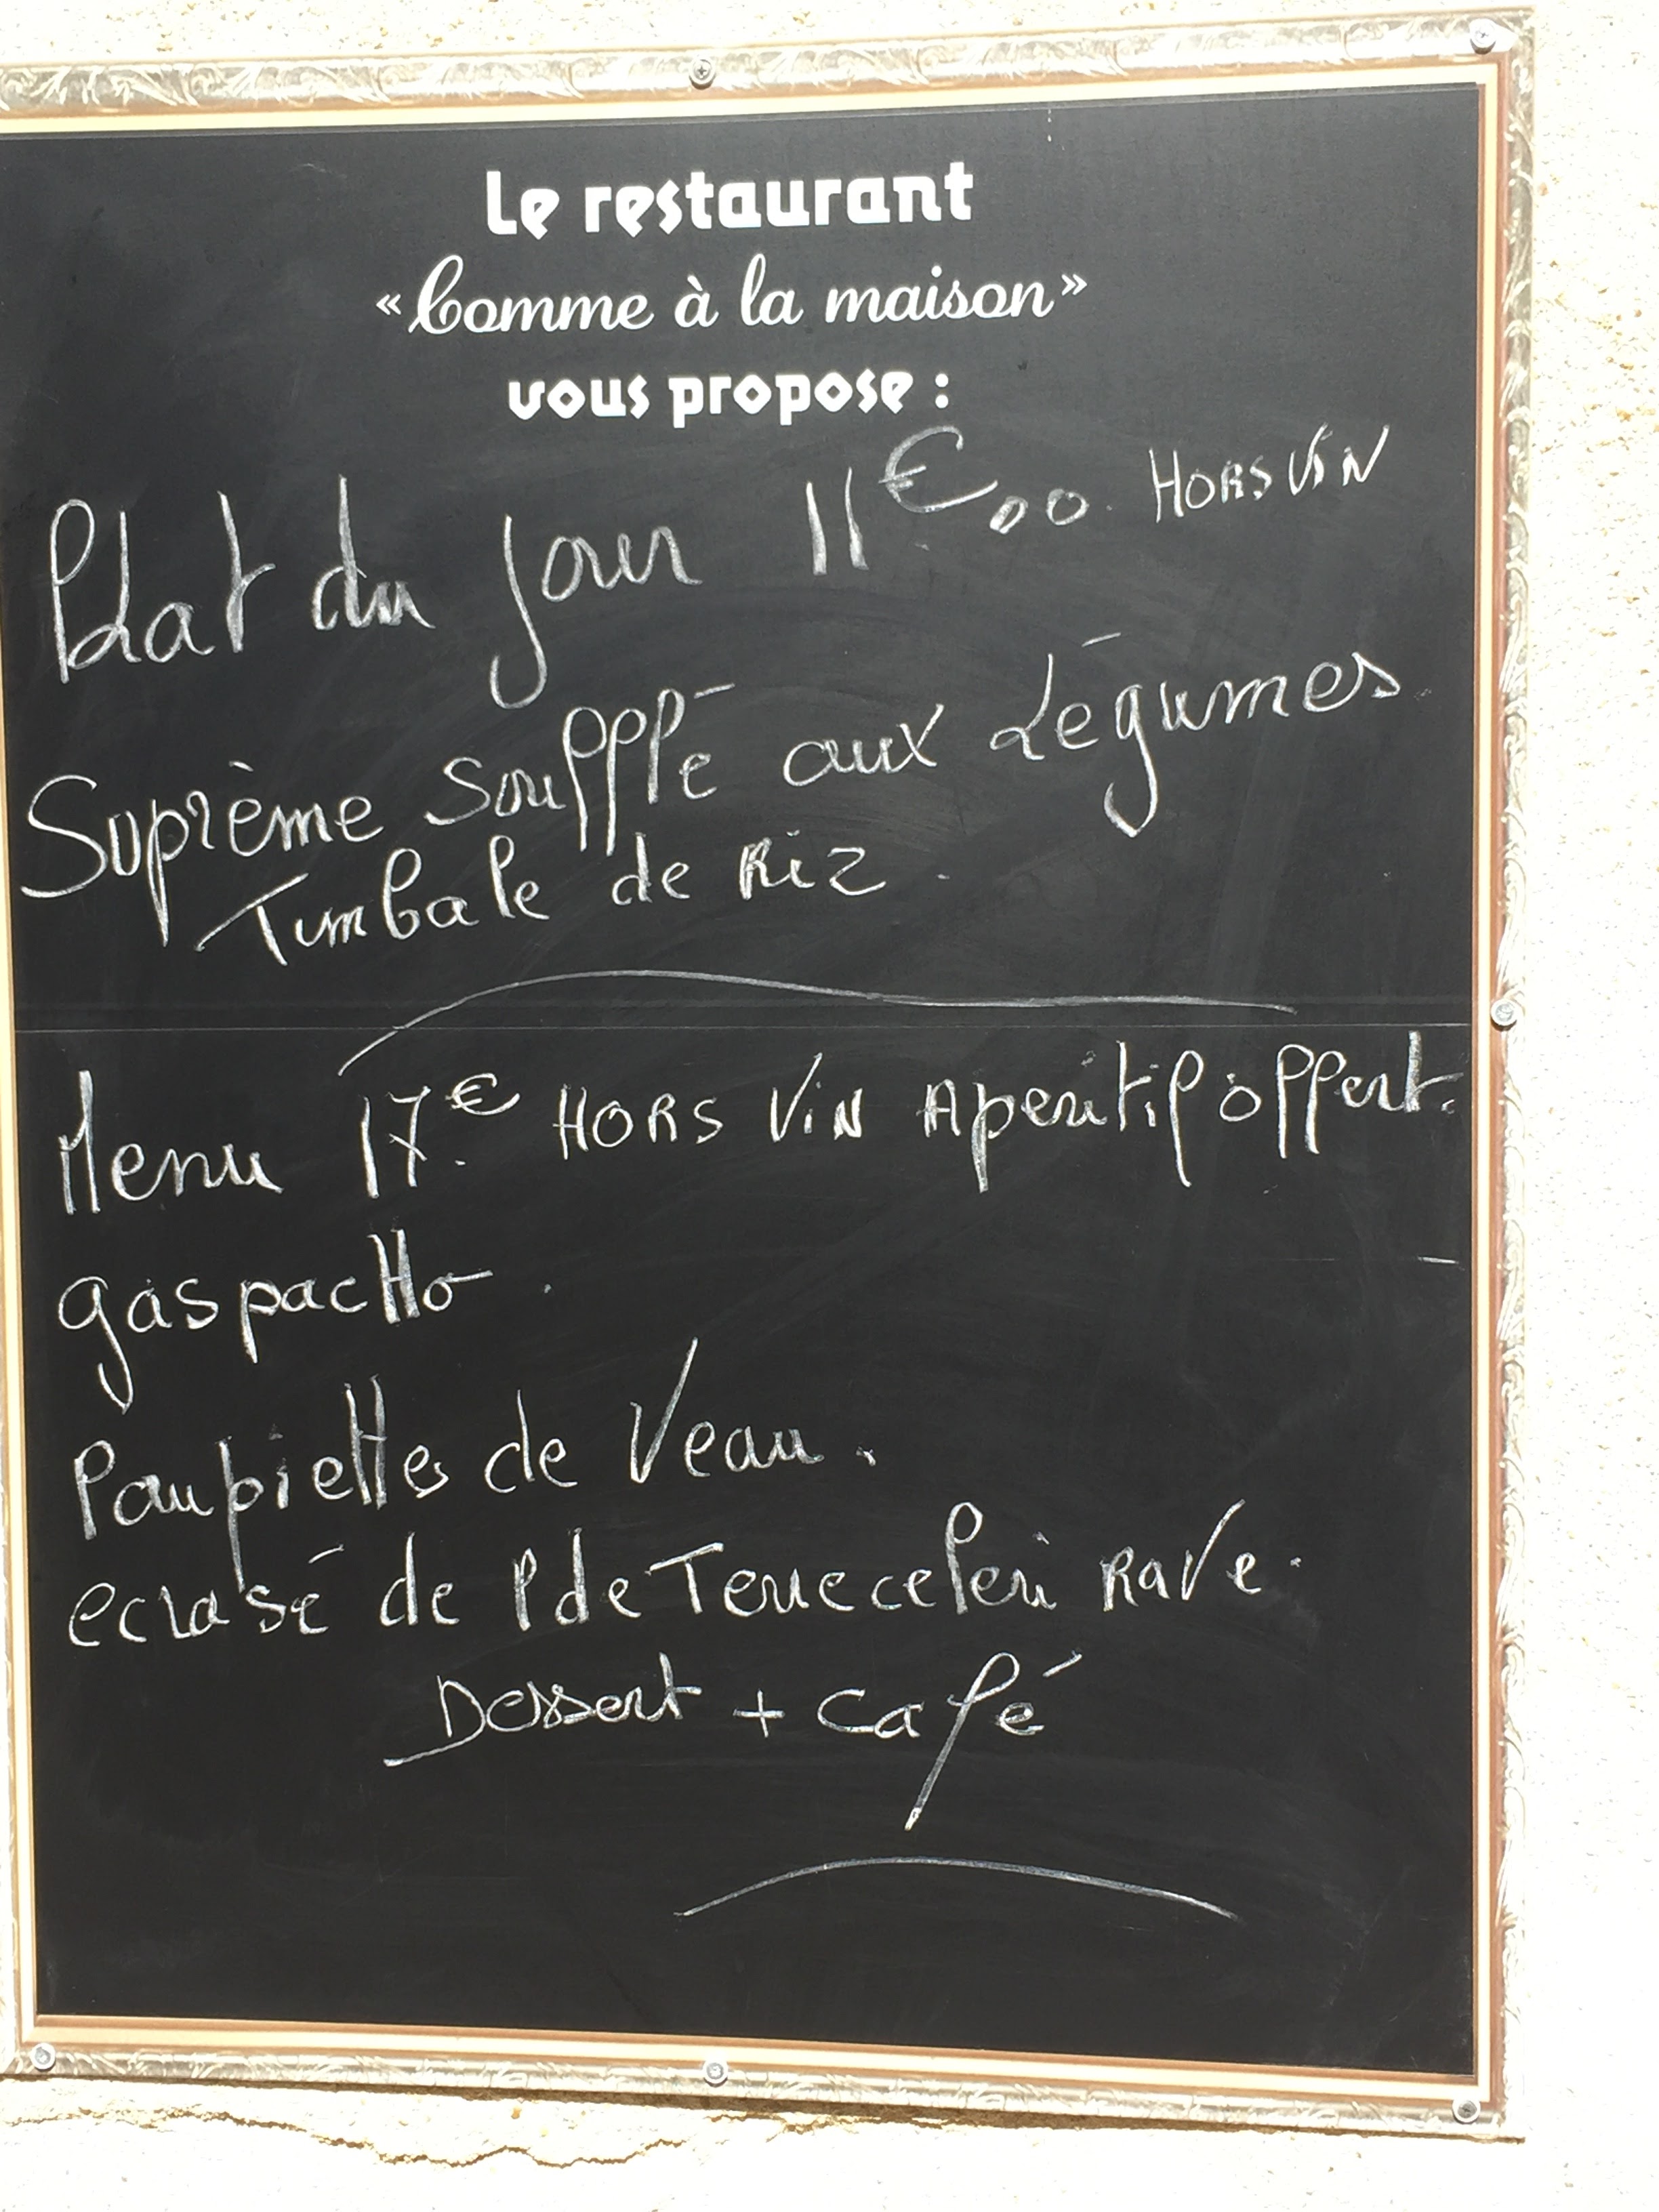 Le restaurant
« Comme à la maison »
vous propose :
Plat du jour 11€,00. HORS ViN
Suprème soufflé aux Légumes
Timbale de Riz.
Menu 17.€ HORS ViN Aperitif offert.
gaspacHo.
Paupiettes de Veau.
ecrasé de P de Terre celeri Rave.
Dessert + Café